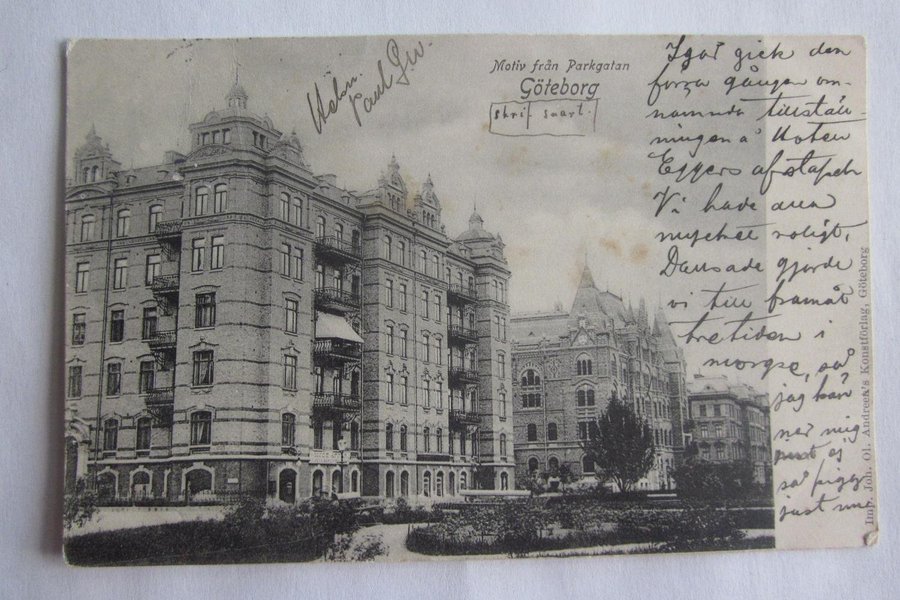 Motiv från Parkgatan
Göteborg
skrif snart.
Helsn.
Paul
Igår gick den
förra gången om-
nämnda tillstäl-
ningen å Hotell
Eggers af stapeln
Vi hade
mycket roligt,
Dansade gjorde
vi till framåt
tretiden i
morgse, så
jag kän
ner mig
just ej
så pigg
just nu
Imp. Joh. Ol. Andreen's Konstförlag, Göteborg